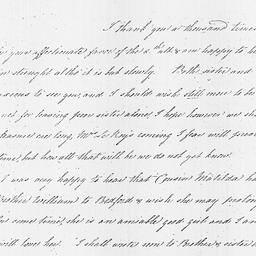 I thank you a thousand times
your affectionate favor of the 2nd ult & am happy to he
in strength altho' it is but slowly. Both sister and
anxious to see you, and I should wish still more to be
not for leaving poor sister alone, I hope however we sh
ere long, Mrs Le Roy's coming I fear will prev
time, but how all that will be we do not yet know.
I was very happy to hear that Cousin Matilda ha
Brother William to Bedford & wish she may prolong
some time, she is an amiable good girl and I am
will love her. I shall write soon to Brother & sister